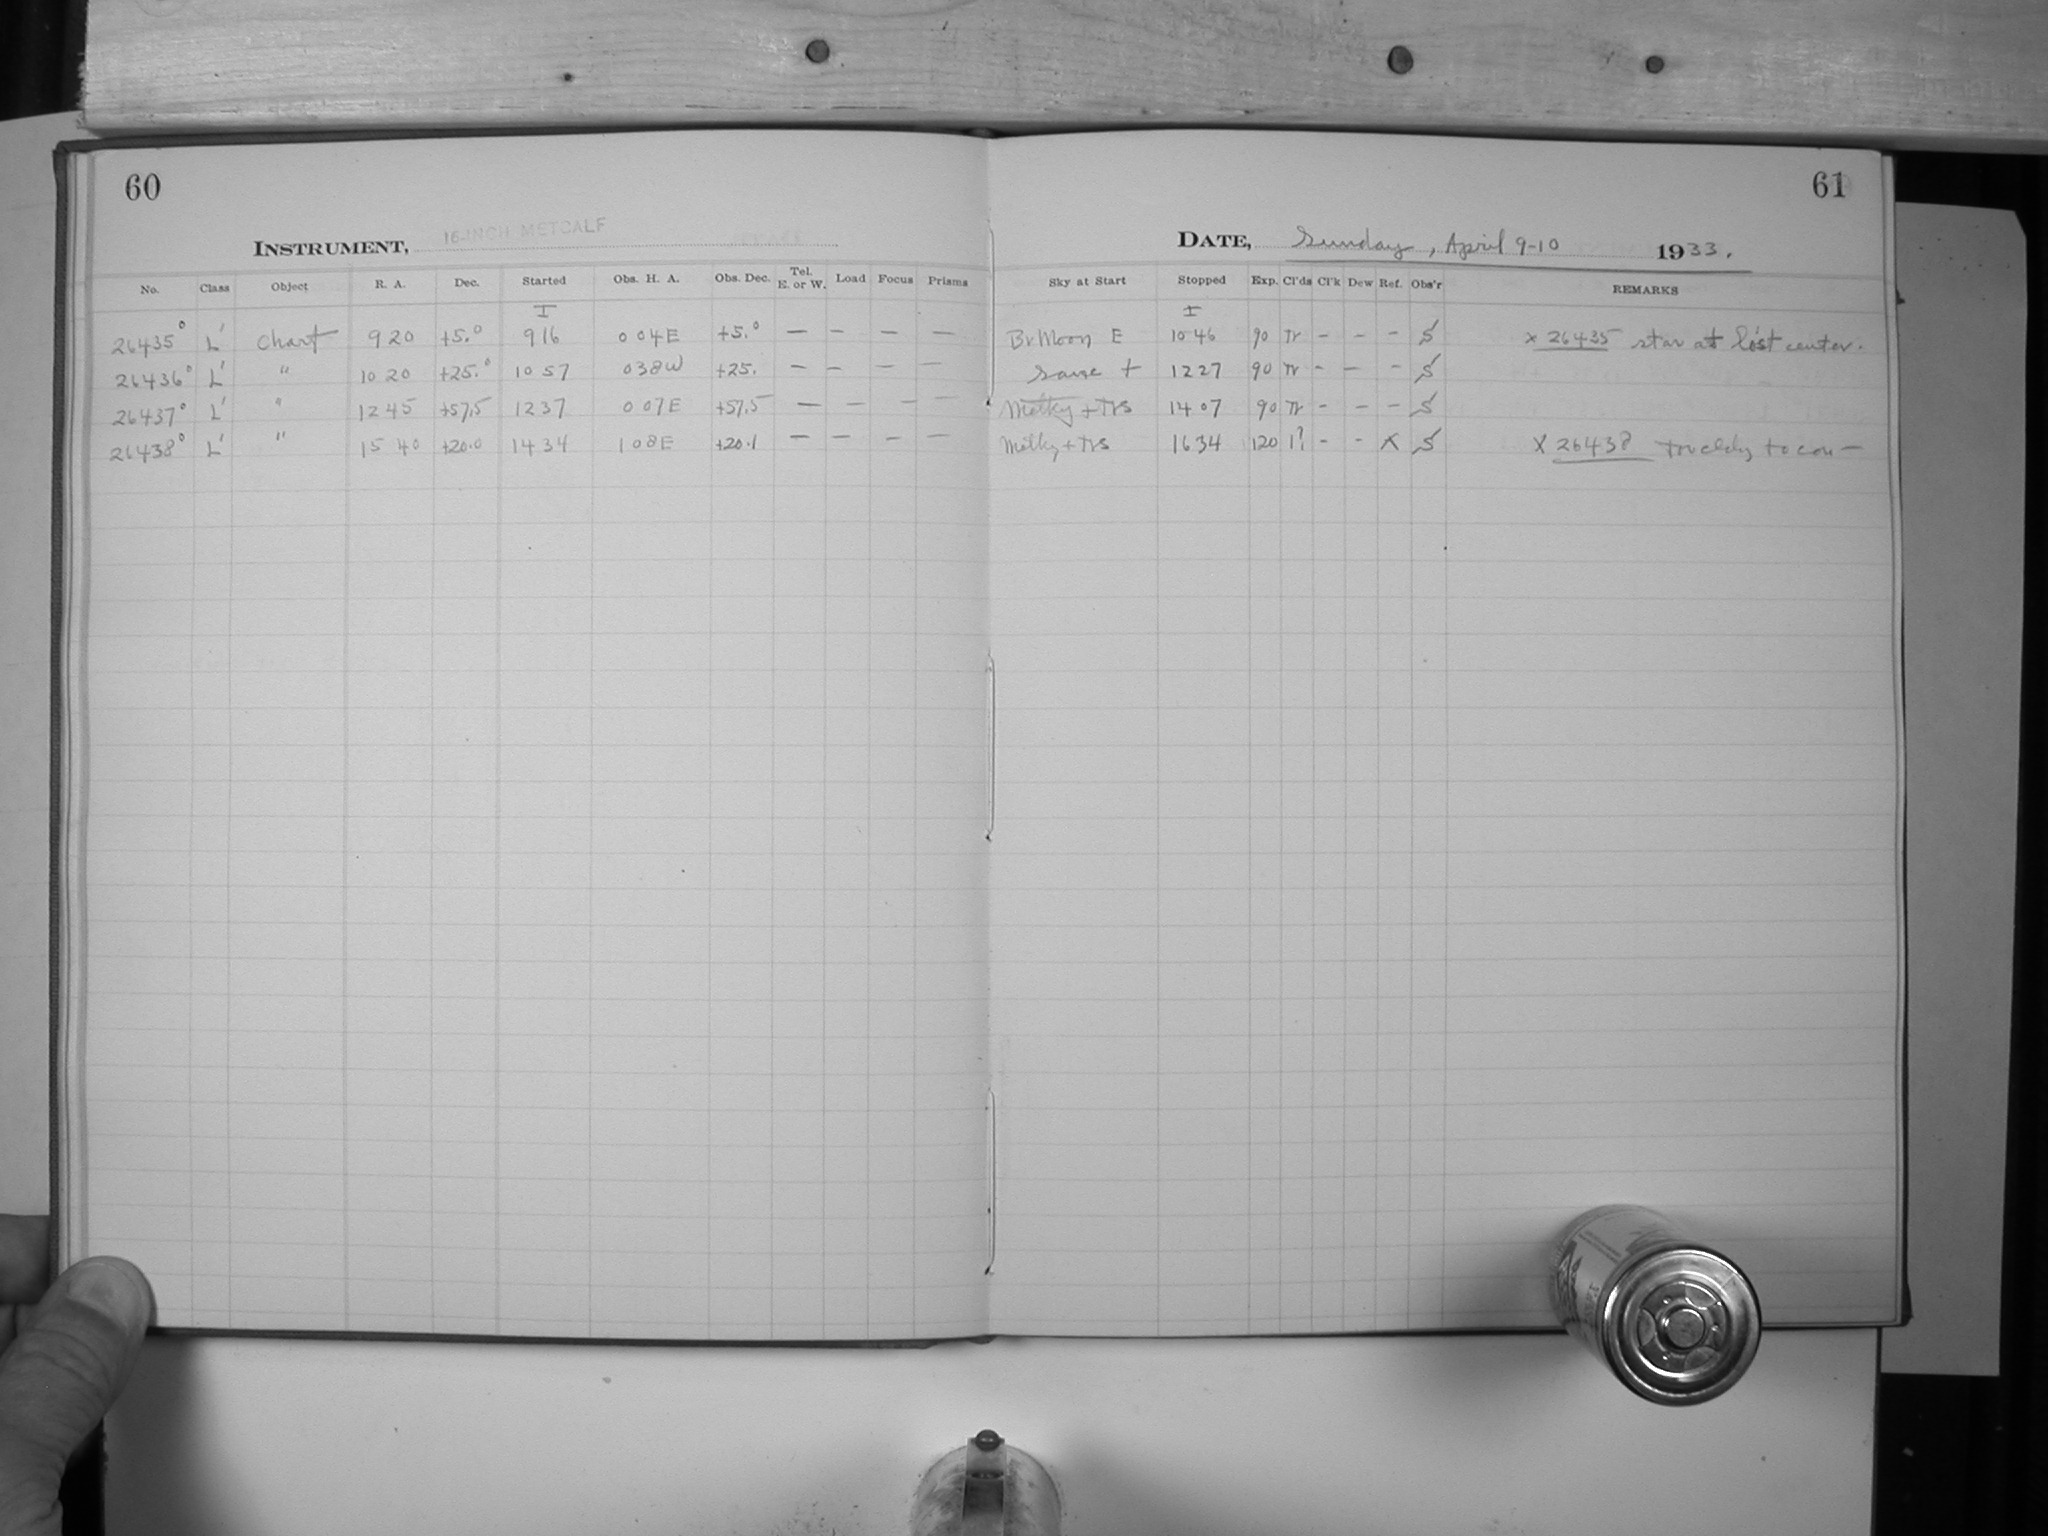 60
61
INSTRUMENT, 16-INCH METCALF
DATE, Sunday, April 9-10 1933.
No. Class Object R. A. Dec. Started Obs. H. A. Obs. Dec. Tel. E. or W. Load Focus Prisms Sky at Start Stopped Exp. Cl'ds Cl'k Dew Ref. Obs'r REMARKS
I I
26435° L' Chart 9 20 +5.° 9 16 0 04E +5.° — — — — Br Moon E 10 46 90 Tr - - - S x 26435 star at lost center.
26436° L' " 10 20 +25.° 10 57 0 38W +25. — — — — Same + 12 27 90 Tr - - - S
26437° L' " 12 45 +57.5 12 37 0 07E +57.5 — — — — Milky + Trs 14 07 90 Tr - - - S
26438° L' " 15 40 +20.0 14 34 1 08E +20.1 — — — — Milky + Trs 16 34 120 1? - - x S X 26438 to con —